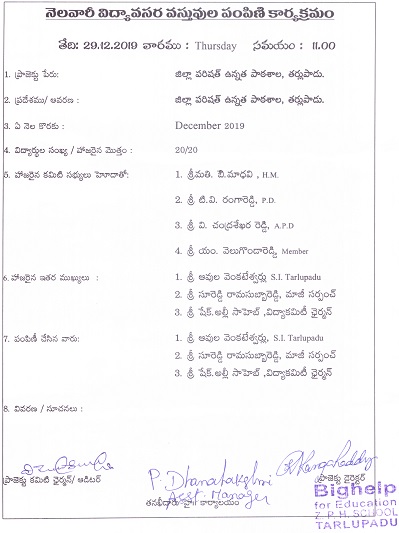 నెలవారీ విద్యావసర వస్తువుల పంపిణి కార్యక్రమం
తేది: 29.12.2019 వారము : Thursday సమయం : 11.00
1. ప్రాజెక్టు పేరు: జిల్లా పరిషత్ ఉన్నత పాఠశాల, తర్లుపాడు.
2. ప్రదేశము/ ఆవరణ : జిల్లా పరిషత్ ఉన్నత పాఠశాల, తర్లుపాడు.
3. ఏ నెల కొరకు : December 2019
4. విద్యార్థుల సంఖ్య / హాజరైన మొత్తం : 20/20
5. హాజరైన కమిటి సభ్యులు హెూదాతో: 1. శ్రీమతి. ఔ.మాధవి , H.M.
2. శ్రీ టి.వి. రంగారెడ్డి, P.D.
3. శ్రీ వి. చంద్రశేఖర రెడ్డి, A.P.D
4. శ్రీ యం. వెలుగొండారెడ్డి, Member
6. హాజరైన ఇతర ముఖ్యులు : 1. శ్రీ ఆవుల వెంకటేశ్వర్లు S.I. Tarlupadu
2. శ్రీ సూరెడ్డి రామసుబ్బారెడ్డి, మాజీ సర్పంచ్
3. శ్రీ షేక్.అల్లీ సాహెబ్ ,విద్యాకమిటీ ఛైర్మన్
7. పంపిణీ చేసిన వారు: 1. శ్రీ ఆవుల వెంకటేశ్వర్లు, S.I. Tarlupadu
2. శ్రీ సూరెడ్డి రామసుబ్బారెడ్డి, మాజీ సర్పంచ్
3. శ్రీ షేక్.అల్లీ సాహెబ్ ,విద్యాకమిటీ ఛైర్మన్
8. వివరణ / సూచనలు :
P. Dhanalakshmi
Asst. Manager
ప్రాజెక్టు కమిటి ఛైర్మన్/ ఆడిటర్
ప్రాజెక్టు డైరెక్టర్
కార్యాలయం
Bighelp
for Education
Z. P. H. SCHOOL
TARLUPADU